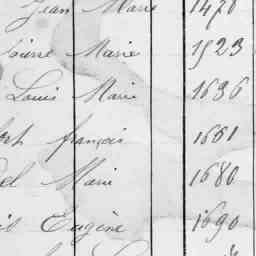 Jean Marie 1470
Pierre Marie 1523
Louis Marie 1636
françois 1661
Marie 1680
Eugène 1690